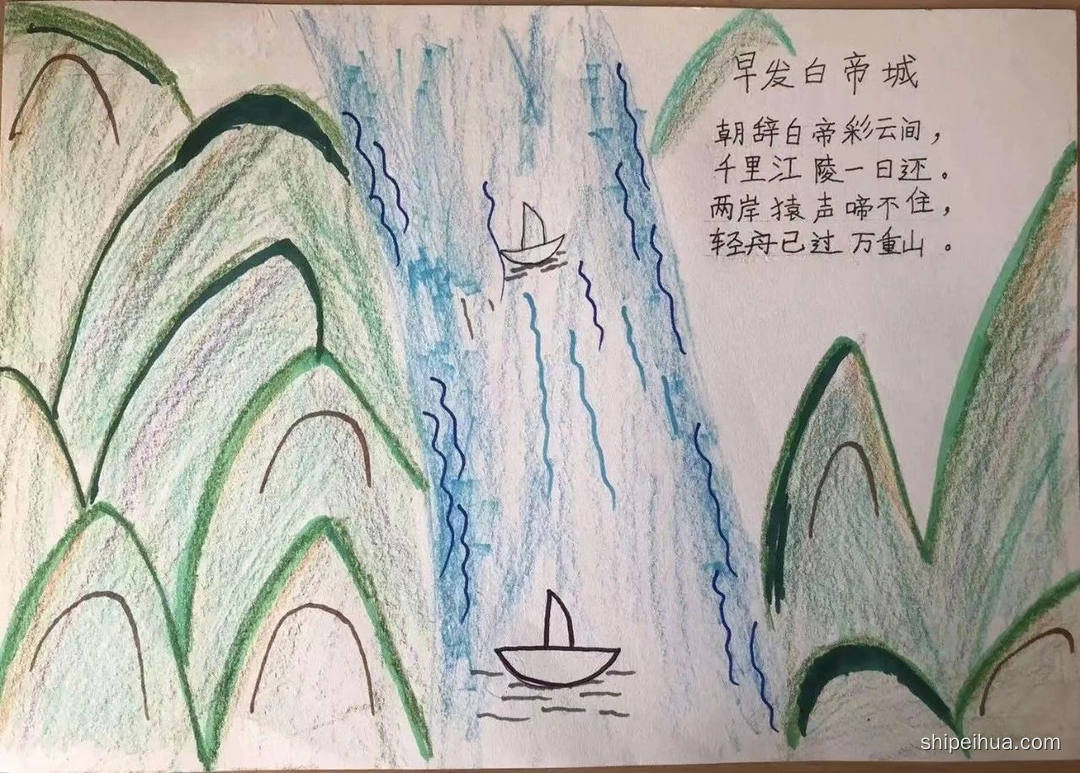 早发白帝城
朝辞白帝彩云间，
千里江陵一日还。
两岸猿声啼不住，
轻舟已过万重山。
shipeihua.com